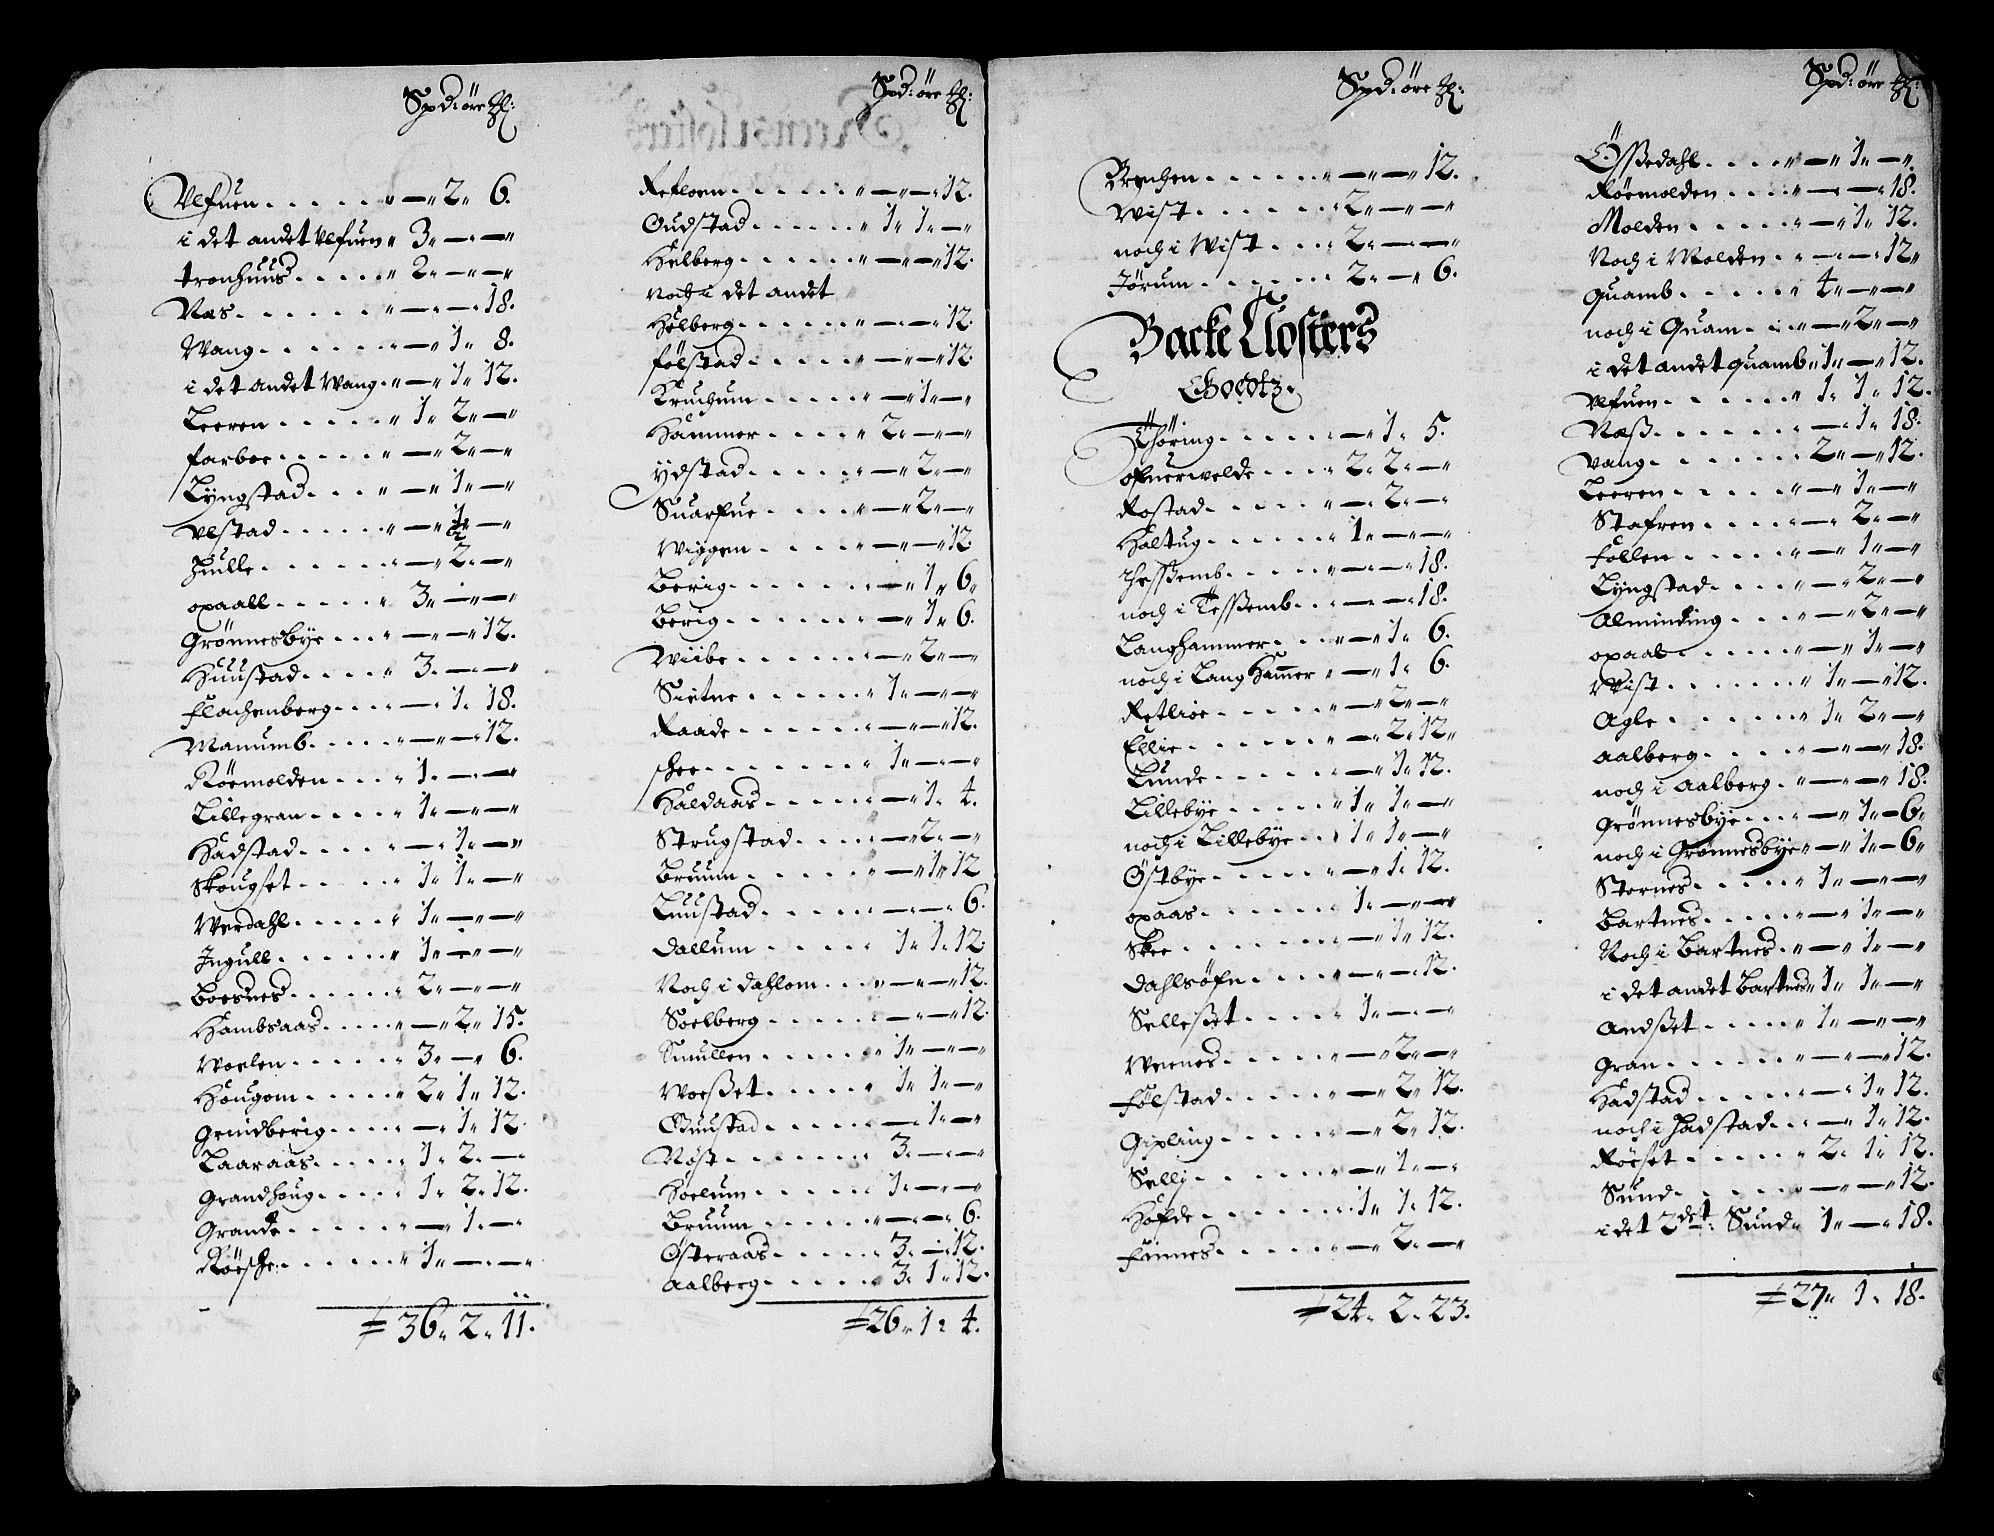 Spd: öre
Vlfuen . . . . . . " — " 2 " 6.
i det andet Vlfuen " 3 " — " — "
tronhuus . . . . . " 2 " — " — "
Næs . . . . . . . " — " — " 18.
Wang . . . . . . " — " 1 " 8.
i det andet Wang . " — " 1 " 12.
Leeren . . . . . " 1 " 2 " — "
farboe . . . . . " — " 2 " — "
Lyngstad . . . " — " 1 " — "
Vlstad . . . . . " — " — "
Hulle . . . . . . " — " 2 " — "
opaall . . . . . " 3 " — " — "
Grönnesbye . . . " — " — " 12.
Huustad . . . . " 3 " — " — "
Flachenberg . . . " — " 1 " 18.
Manumb . . . . . " — " — " 12.
Röemolden . . . . " 1 " — " — "
Lillegran . . . . " 1 " — " — "
Hadstad . . . . . " — " 1 " — "
Skougset . . . . . " 1 " 1 " — "
Werdahl . . . . . " 1 " — " — "
Ingull . . . . . . " 1 " — " — "
Boesnes . . . . . " 2 " — " — "
Hambsaas . . . . " — " 2 " 15.
Woelen . . . . . " 3 " — " 6.
Hougom . . . . . " 2 " 1 " 12.
Grindberig . . . . " — " 1 " 12.
Laaraas . . . . . " 1 " 2 " — "
Grandhoug . . . . " 1 " 2 " 12.
Grande . . . . . . " — " 1 " — "
Röesche . . . . . " 1 " — " — "
36 " 2 " 11.
Spd: öre
Refloen . . . . . . " — " — " 12.
Oudstad . . . . . . " 1 " 1 " — "
Helberg . . . . . . " — " — " 12.
Noch i det andet
Helberg . . . . . . " — " — " 12.
fölstad . . . . . " — " — " 12.
Kruchum . . . . . " — " 1 " — "
Hammer . . . . . " 2 " — " — "
Ydstad . . . . . " — " 2 " — "
Suarfue . . . . " — " 2 " — "
Wiggen . . . . . " — " — " 12.
Berig . . . . . . " — " 1 " 6.
Berig . . . . . . " — " 1 " 6.
Wiibe . . . . . . " — " 2 " — "
Sietne . . . . . . " 1 " — " — "
Raade . . . . . . " — " — " 12.
schee . . . . . . " 1 " — " — "
Haldaas . . . . . " — " 1 " 4.
Strugstad . . . . " — " 2 " — "
Bruum . . . . . . " — " 1 " 12
Luustad . . . . . " — " — " 6.
Dallum . . . . . " 1 " 1 " 12.
Noch i dahlom . . . " — " — " 12.
Soelberg . . . . . " — " — " 12.
Smullen . . . . . " 1 " — " — "
Woesset . . . . . " 1 " 1 " — "
Guustad . . . . . " — " 1 " — "
Nöst . . . . . . . " 3 " — " — "
Hoelum . . . . . " 1 " — " — "
Bruum . . . . . . " — " — " 6.
Österaas . . . . . " 3 " — " 12.
Aalberg . . . . . " 3 " 1 " 12.
26 " 1 " 4.
Spd: öre
Brechen . . . . . . " — " — " 12.
Wist . . . . . . . " 2 " — " — "
noch i Wist . . . " 2 " — " — "
Jörum . . . . . . " 2 " — " 6.
Backe Closters
Goodtz.
Thöring . . . . . " — " 1 " 5.
ofuerwolde . . . . " 2 " 2 " — "
Rostad . . . . . . " — " 2 " — "
Haltug . . . . . . " 1 " — " — "
Thessemb . . . . . " — " — " 18.
noch i Tessemb . . . " — " — " 18.
Langhammer . . . . " — " 1 " 6.
noch i Lang Hammer " — " 1 " 6.
Retlioe . . . . . " — " 2 " — "
Ellie . . . . . . " — " 2 " 12 "
Lunde . . . . . . " — " 1 " 12.
Lillebye . . . . . " 1 " 1 " — "
noch i Lillebye . . . " 1 " 1 " — "
Östbye . . . . . . " — " 1 " 12.
opaas . . . . . . " 1 " — " — "
Skee . . . . . . " — " 1 " 12.
Dahlsöfn . . . . . " — " — " 12.
Sellesset . . . . . " 1 " — " — "
Wernes . . . . . . " — " 2 " — "
Fölstad . . . . . " — " 2 " 12.
Gipling . . . . . . " — " 2 " 12.
Sellj . . . . . . . " — " 1 " — "
Hofde . . . . . . . " 1 " 1 " 12.
Finnes . . . . . . " — " 2 " — "
24 " 2 " 23.
Spd: öre
Össedahl . . . . " — " 1 " — "
Röemolden . . . . " — " — " 18.
Molden . . . . . " — " 1 " 12.
Noch i Molden . . . " — " — " 12 "
Quamb . . . . . . " 4 " — " — "
noch i Quam . . . " — " 2 " — "
i det andet quamb " 1 " — " 12.
Vlfuen . . . . . . " 1 " 1 " 12.
Næss . . . . . . . " — " 1 " 18.
Vang . . . . . . . " 2 " — " 12.
Leeren . . . . . " — " 1 " — "
Stafren . . . . . " — " 2 " — "
Follen . . . . . . " — " 1 " — "
Lyngstad . . . . . " — " 2 " — "
Alminding . . . . " — " 2 " — "
opaal . . . . . . " — " 1 " — "
Wist . . . . . . . " 1 " — " 12.
Agle . . . . . . . " 1 " 2 " — "
Aalberg . . . . . " — " — " 18.
noch i Aalberg . " — " — " 18.
Grönnesbye . . . " — " 1 " 6 "
noch i Grönnesbye " — " 1 " 6 "
Stornes . . . . . " 1 " — " — "
Bartnes . . . . . " — " 1 " — "
Noch i Bartnes . " — " 1 " — "
i det andet Bartnes " 1 " 1 " — "
Andsset . . . . . " 1 " — " — "
Gran . . . . . . . " — " — " 12.
Hadstad . . . . . " — " 1 " 12.
noch i Hadstad . . " — " 1 " 12.
Röeset . . . . . . " 2 " 1 " 12.
Sund . . . . . . . " — " — " 12.
i det 2det: Sund " 1 " — " 18.
27 " 1 " 18.